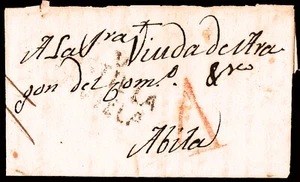 A La Sra Viuda de Ara
gon del Com.o &ca
Abila